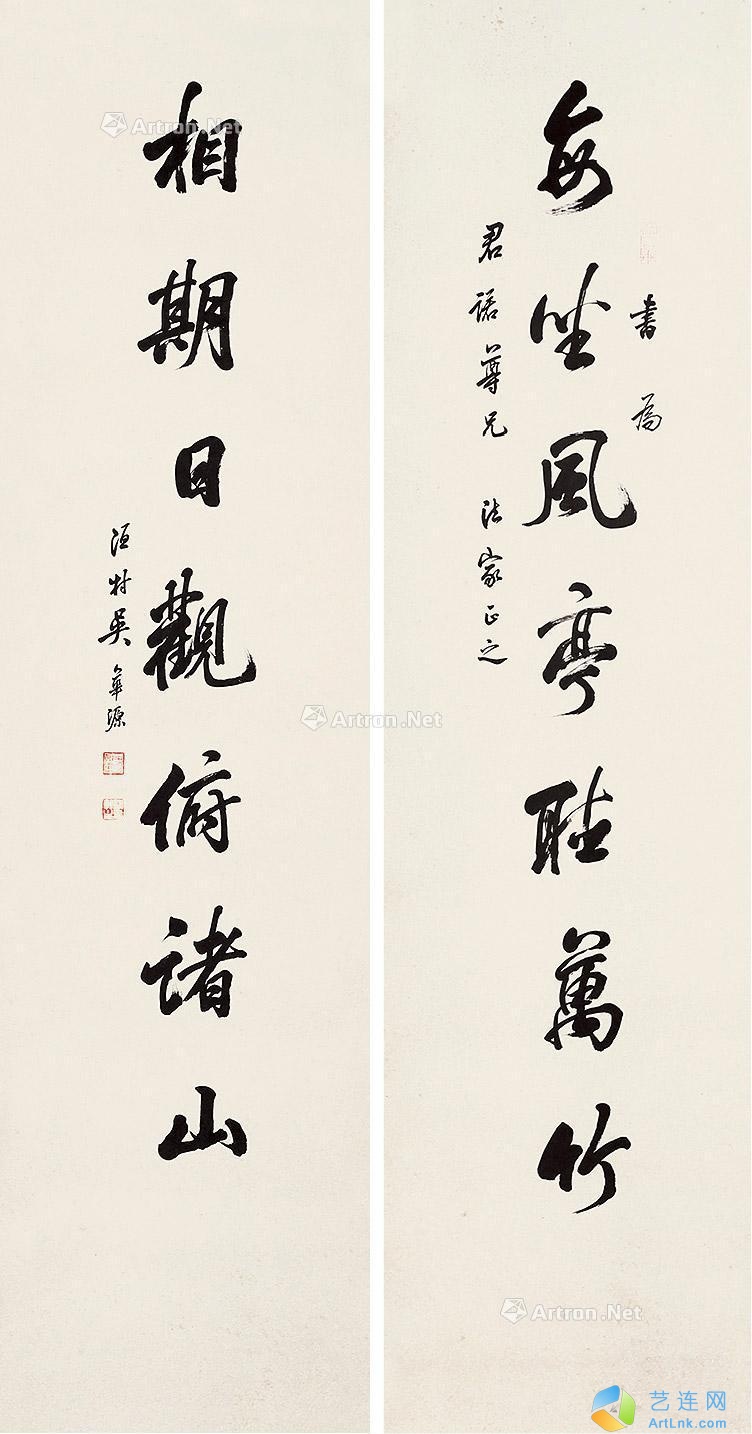 書為
每坐風亭聽萬竹
君諾尊兄 法家正之
相期日觀俯諸山
漁村吳華源
Artron.Net
Artron.Net
Artron.Net
艺连网
ArtLnk.com